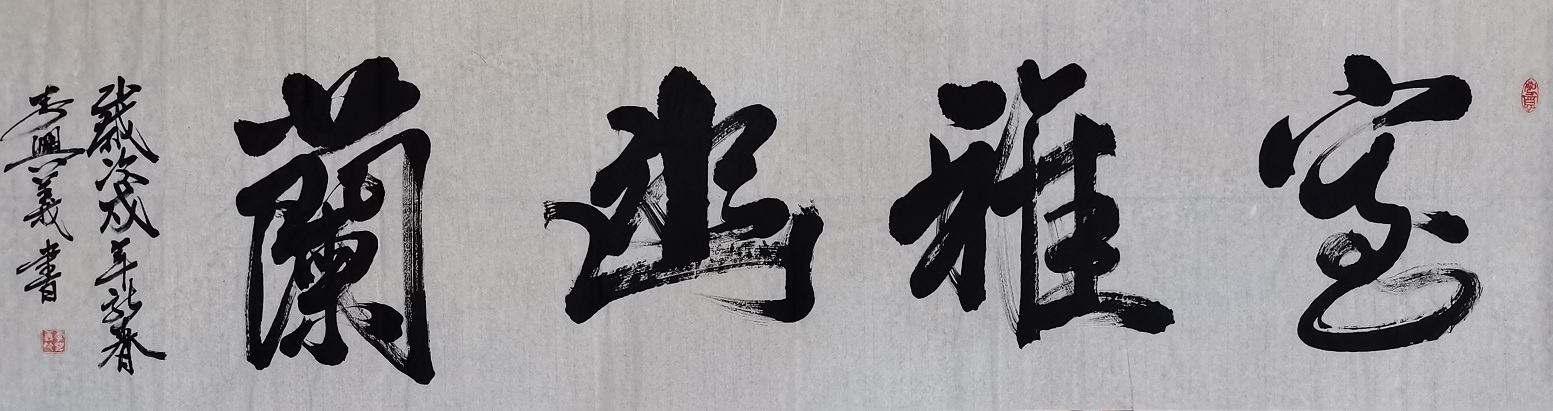 室雅幽蘭
歲次戊戌年新春
李興義書